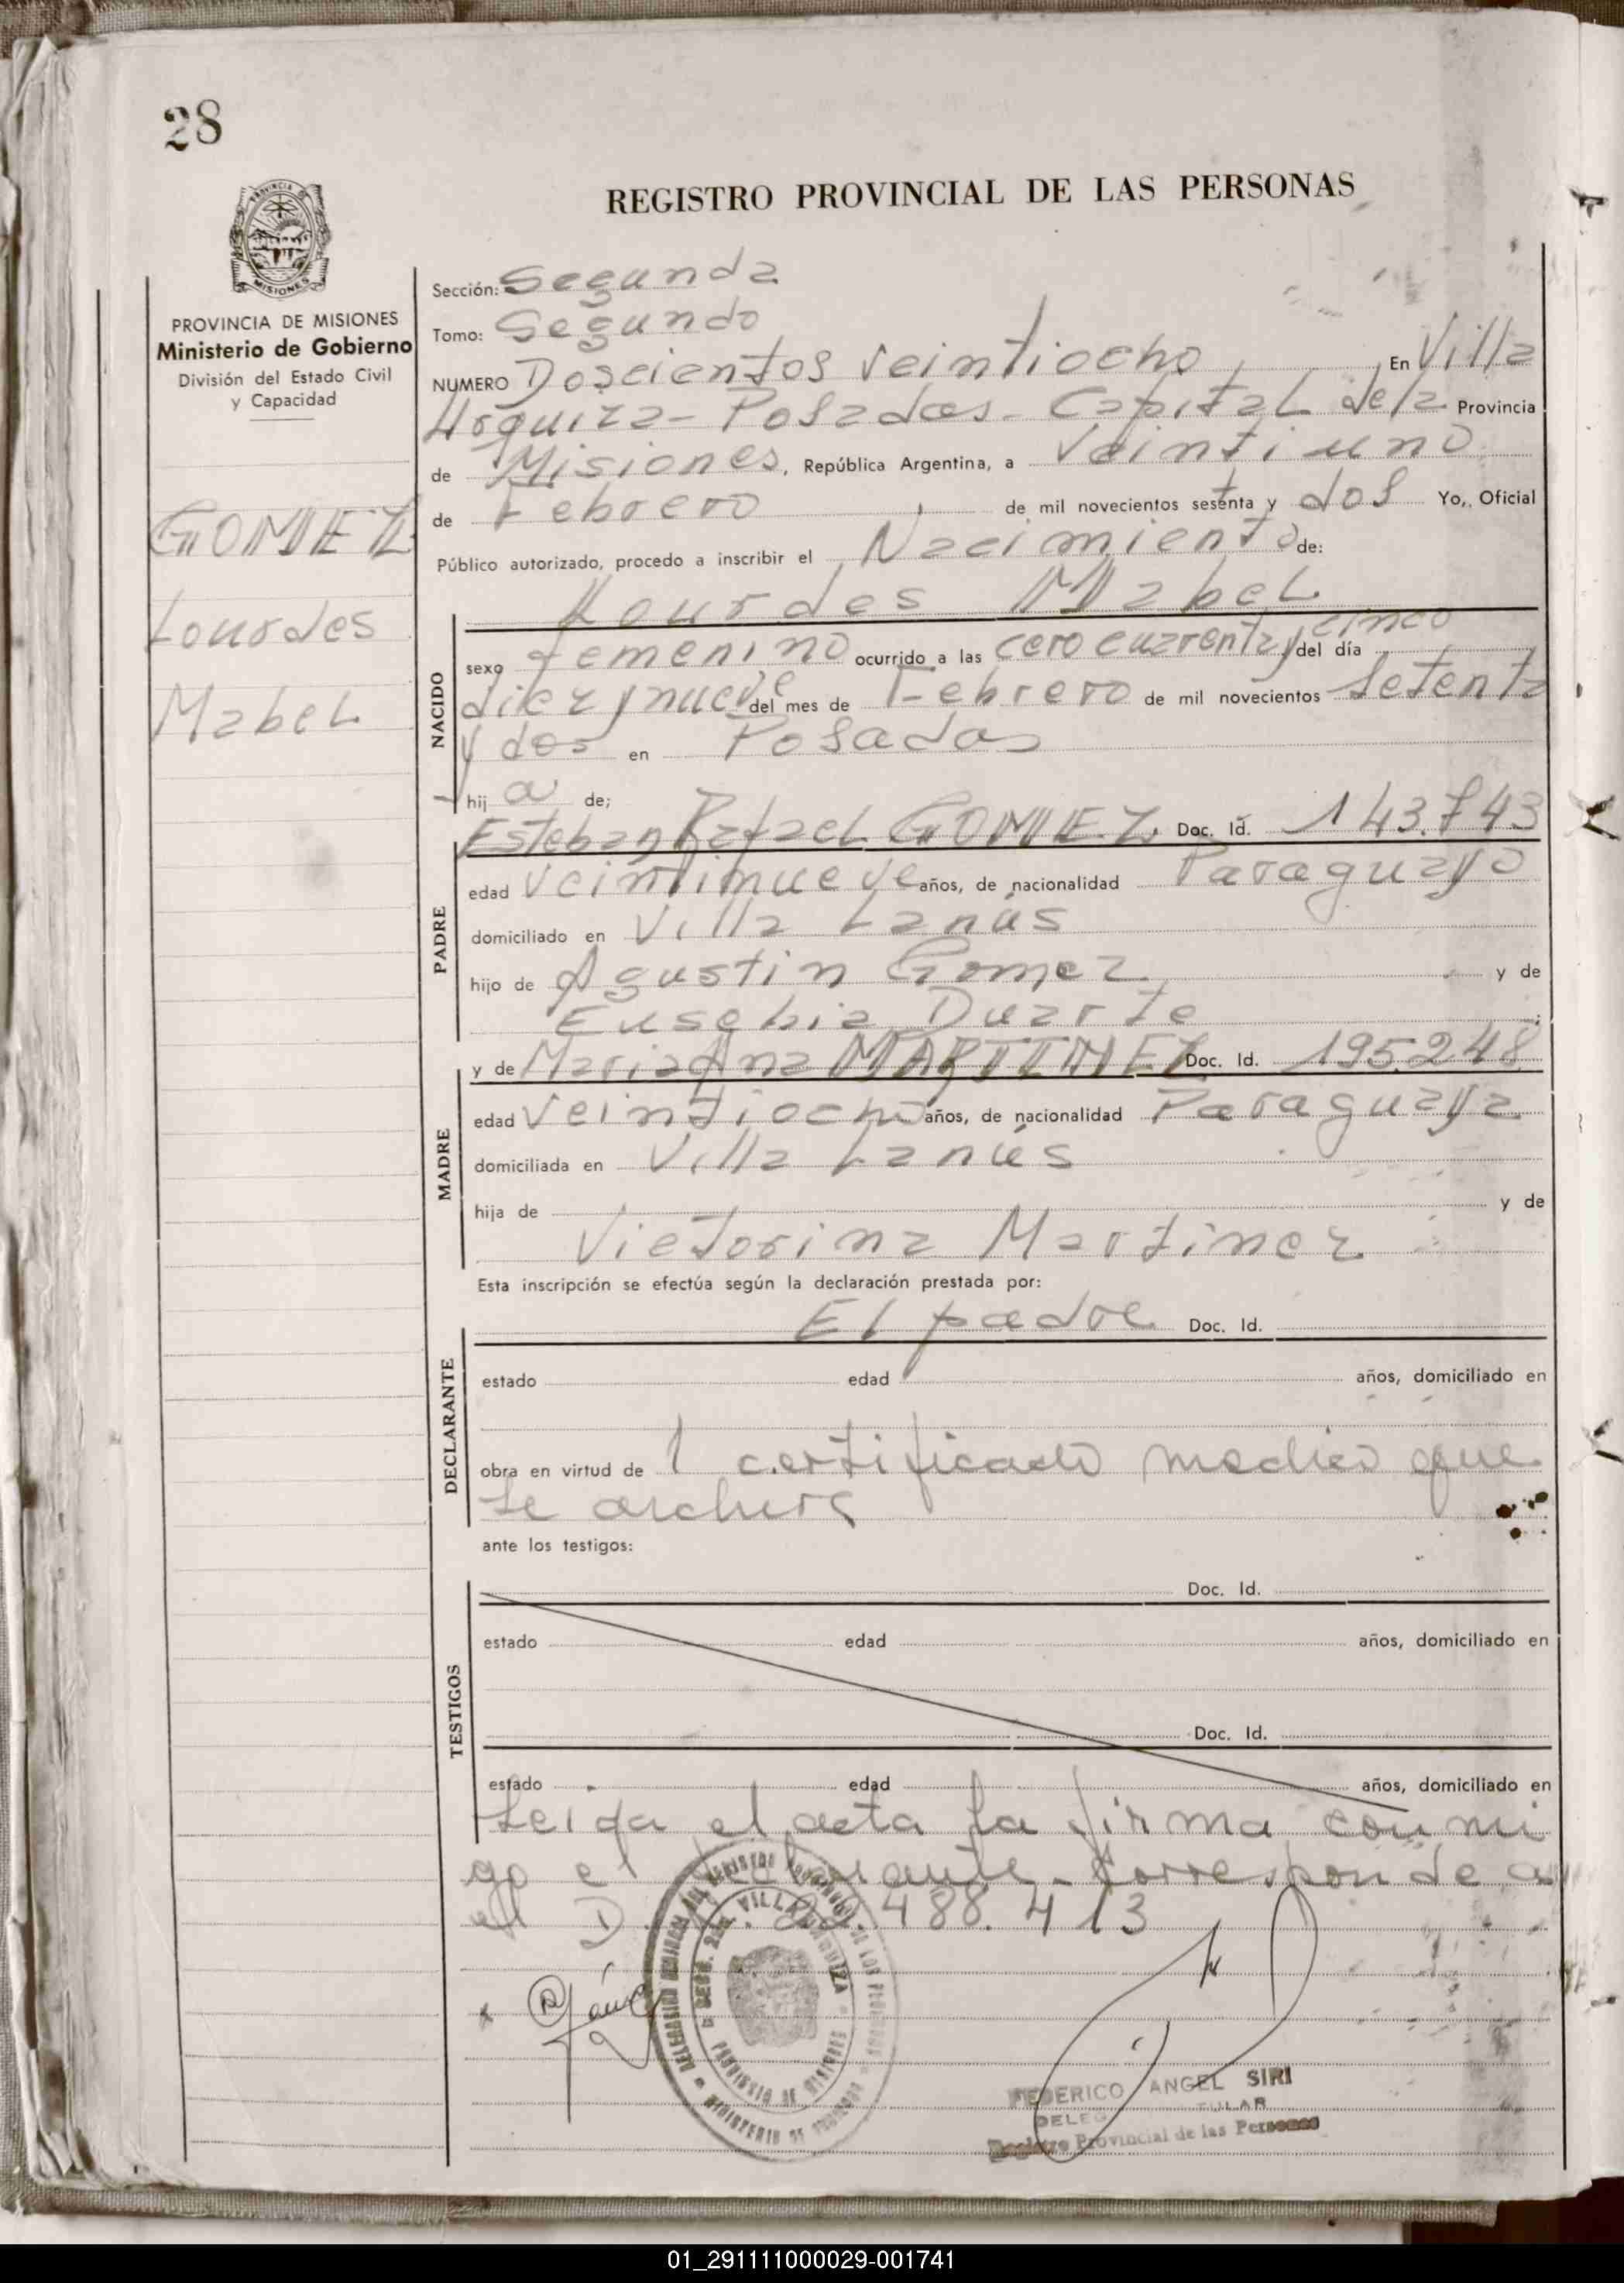 28
REGISTRO PROVINCIAL DE LAS PERSONAS
PROVINCIA DE MISIONES
Ministerio de Gobierno
División del Estado Civil
y Capacidad
GOMEZ
Lourdes
Mabel
Sección: Segunda
Tomo: Segundo
NUMERO Doscientos veintiocho En Villa
Urquiza - Posadas - Capital de la Provincia
de Misiones, República Argentina, a Veintiuno
de Febrero de mil novecientos sesenta y dos Yo,. Oficial
Público autorizado, procedo a inscribir el Nacimiento de:
Lourdes Mabel
NACIDO
sexo femenino ocurrido a las cero cuarenta y cinco del día
diez y nueve del mes de Febrero de mil novecientos setenta
y dos en Posadas
hij a de;
Esteban Rafael GOMEZ. Doc. Id. 143.743
PADRE
edad veintinueve años, de nacionalidad Paraguayo
domiciliado en Villa Lanús
hijo de Agustin Gomez y de
Eusebia Duarte
y de Maria Ana MARTINEZ Doc. Id. 195.248
MADRE
edad veintiocho años, de nacionalidad Paraguaya
domiciliada en Villa Lanús
hija de y de
Victorina Martinez
Esta inscripción se efectúa según la declaración prestada por:
El padre Doc. Id.
DECLARANTE
estado edad años, domiciliado en
obra en virtud de 1 certificado medico que
se archiva
ante los testigos:
Doc. Id.
TESTIGOS
estado edad años, domiciliado en
Doc. Id.
estado edad años, domiciliado en
Leida el acta la firma conmi
go el declarante - Corresponde a
el D. 22.488.413
VILLA URQUIZA
PROVINCIA DE MISIONES
FEDERICO ANGEL SIRI
Registro Provincial de las Personas
01_291111000029-001741